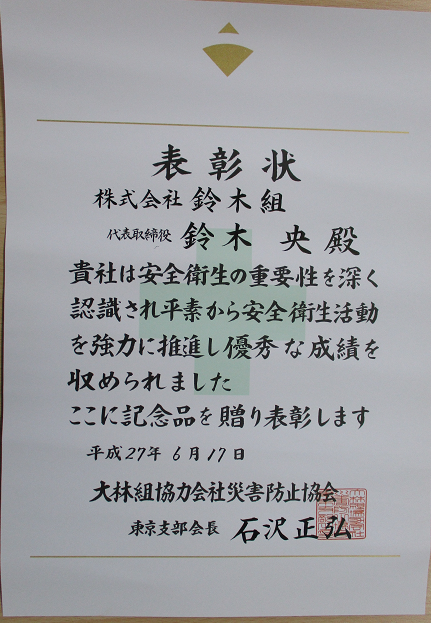 表彰状
株式会社 鈴木組
代表取締役 鈴木 央 殿
貴社は安全衛生の重要性を深く
認識され平素から安全衛生活動
を強力に推進し優秀な成績を
収められました
ここに記念品を贈り表彰します
平成27年 6月17日
大林組協力会社災害防止協会
東京支部会長 石沢正弘